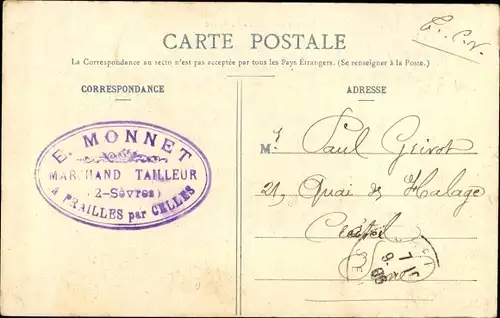 T. C. N.
CARTE POSTALE
La Correspondance au recto n'est pas acceptée par tous les Pays Étrangers. (Se renseigner à la Poste.)
CORRESPONDANCE
ADRESSE
E. MONNET
MARCHAND TAILLEUR
(2-Sèvres)
à PRAILLES par CELLES
M. r Paul Geivot
21, Quai de Halage
Creteil